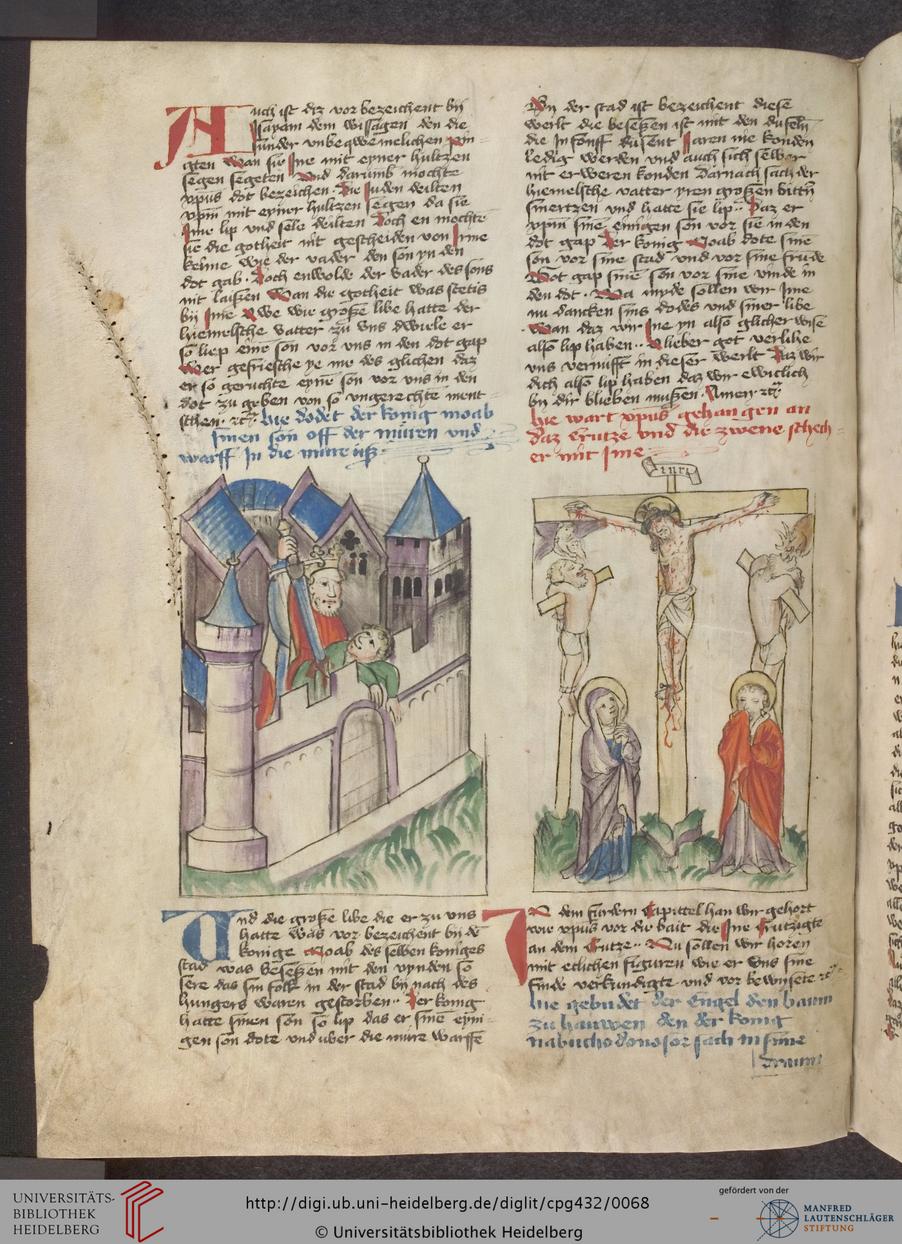 Auch ist diz vor bezeichent by
Isayam dem wissagen den die
sunder vnbeqwemelichen pin-
gten wan sie Ine mit eyner hultzen
segen segeten Vnd darumb mochte
xpus dot bezeichen. Die Juden deilten
xpm mit eyner hultzen segen da sie
sine lip vnd sele deilten Doch en mochte
sie die gotheit nit gescheiden von Irme
keime wye der vader den son yn den
dot gab. Doch enwolde der vader des sons
nit laissen Wan die gotheit was stetis
by Ime Awe wie große libe hatte der
hiemelsche vatter zu vns dwiele er
so liep eine son vor vns in den dot gap
Wer gefriesche ye me des glichen daz
er so geruchte eyne son vor vns in den
dot zu geben von so vngerechte ment-
schen. etc. hie dodet der konig moab
sinen son off der muren vnd
warff In die mure uß
Vnd die große libe die er zu vns
hatte was vor bezeichent by de
konige Moab des selben koniges
stad was beseßen mit den vynden so
sere das sin folk in der stad by nach des
hungers waren gestorben. Der konig
hatte sinen son so lip das er sine eyni-
gen son dote vnd uber die mure warffe
By der stad ist bezeichent diese
werlt die beseßen ist mit den dufeln
die In fonff dusent Jaren nie konden
ledig werden vnd auch sich selber
nit er weren konden Darnach sach der
hiemelsche vatter yren großen bittern
smertzen vnd hatte sie lip. Daz er
xpm sine einigen son vor sie in den
dot gap Der konig Moab dote sine
son vor sine stad vnd vor sine frude
Got gap sine son vor sine vinde in
den dot. Wa myde sollen wir Ime
nu dancken sins dodes vnd siner libe
Wan daz wir Ine yn also glicher wise
also lip haben. O lieber got verlihe
vns vernufft in dieser werlt Daz wir
dich also lip haben daz wir ewiclich
by dir blieben mußen. Amen etc
hie wart xpus gehangen an
daz crutze vnd die zwene schech-
er mit Ime
inri
In dem fordern Capittel han wir gehort
wie xpus vor die bait die Ine Crutzigte
an dem Crutze. Nu sollen wir horen
mit etlichen figuren wie er vns sine
finde verkundigte vnd vor bewysete etc
hie gebudet der Engel den baum
zu hauwen den der konig
nabuchodonosor sach in sime
draum
UNIVERSITÄTS-
BIBLIOTHEK
HEIDELBERG
http://digi.ub.uni-heidelberg.de/diglit/cpg432/0068
© Universitätsbibliothek Heidelberg
gefördert von der
MANFRED
LAUTENSCHLÄGER
STIFTUNG